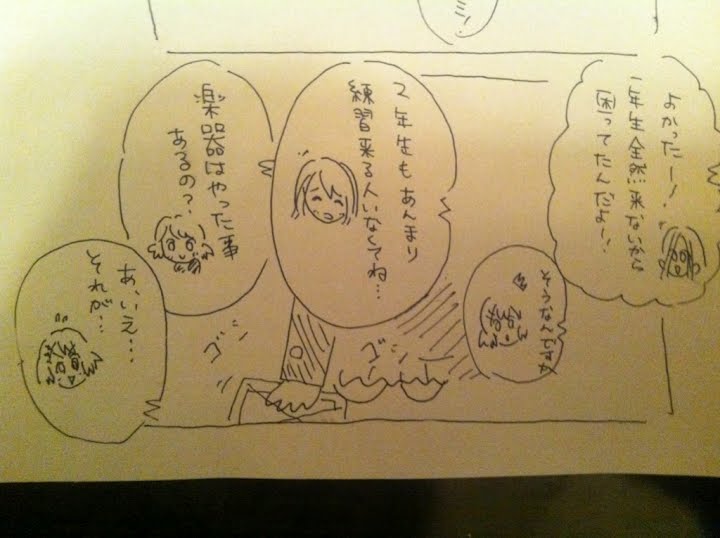 よかったー!
1年生全然来ないから
困ってたんだよー!
そうなんですか
2年生もあんまり
練習来る人いなくてね…
楽器はやった事
あるの?
あ、いえ…
それが…
ゴシ
ゴシ